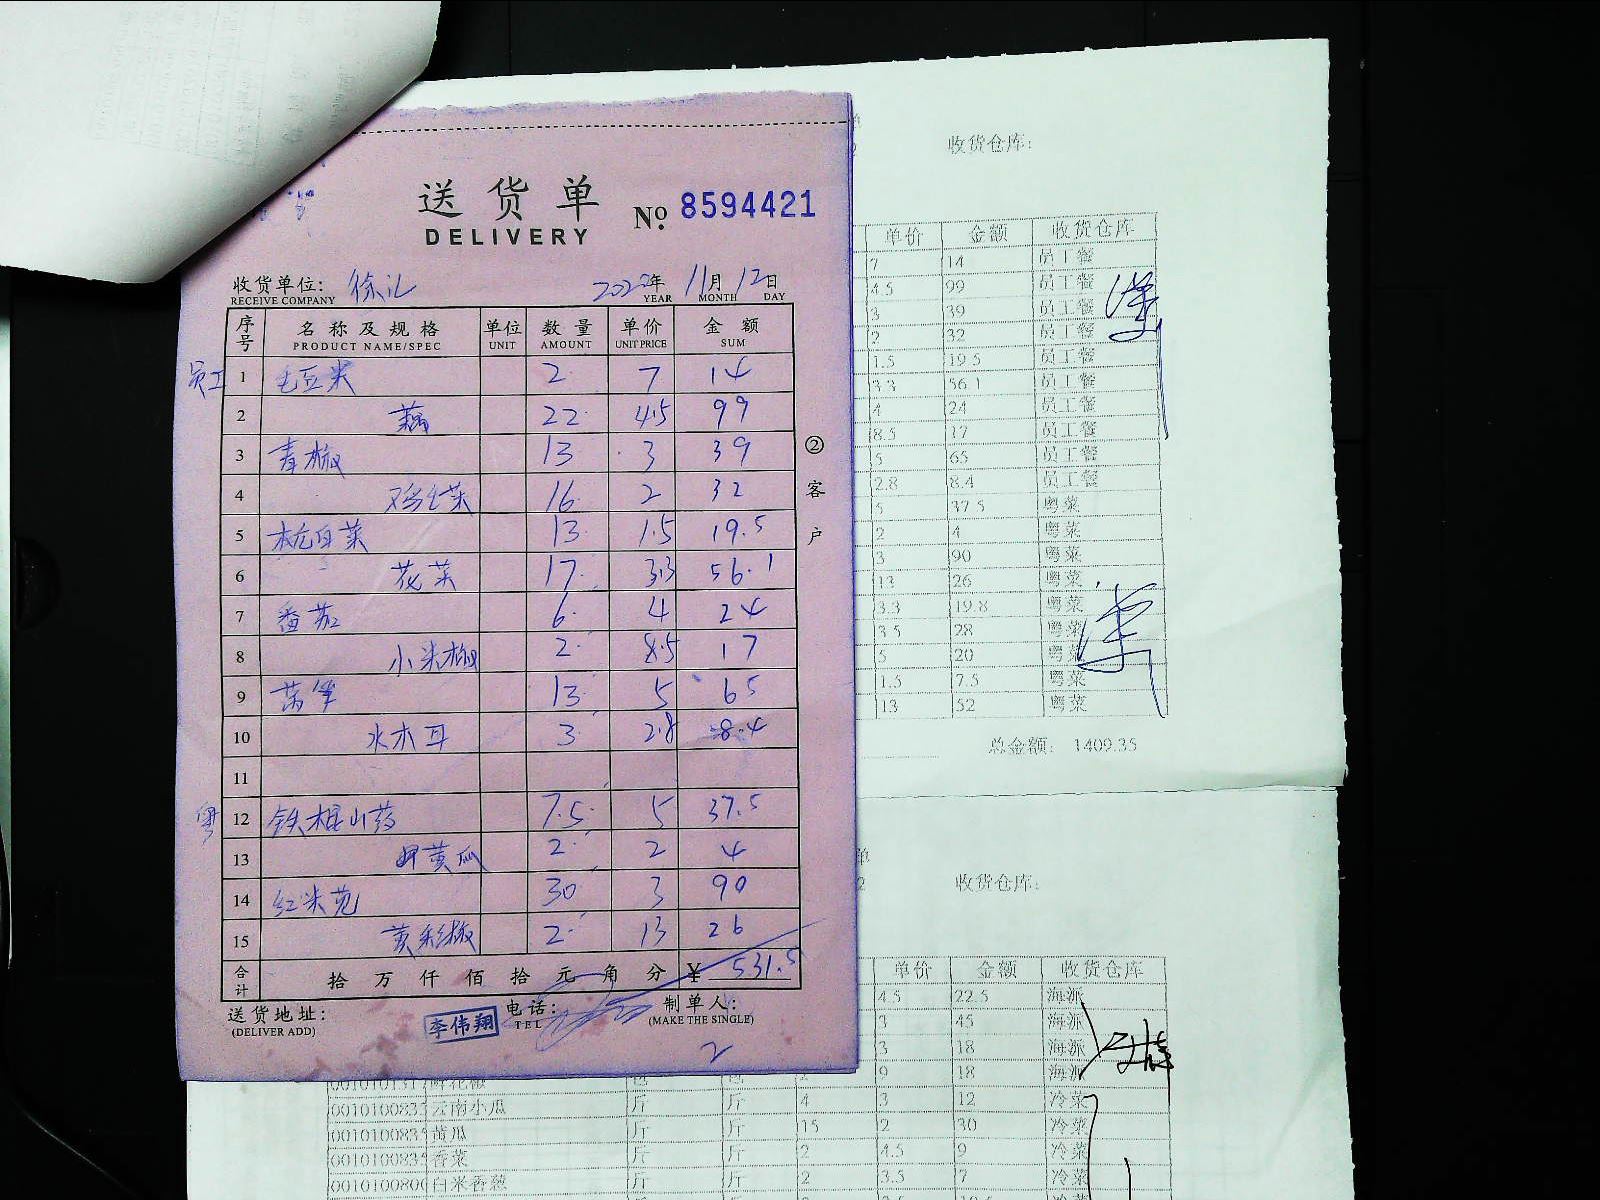 送货单
DELIVERY
№ 8594421
收货单位: 徐汇 2022年 11月 12日
RECEIVE COMPANY YEAR MONTH DAY
序号 名称及规格 单位 数量 单价 金额
PRODUCT NAME/SPEC UNIT AMOUNT UNIT PRICE SUM
员工 1 毛豆米 2 7 14
2 藕 22 4.5 99
3 青椒 13 3 39
4 鸡毛菜 16 2 32
5 杭白菜 13 1.5 19.5
6 花菜 17 3.3 56.1
7 番茄 6 4 24
8 小米椒 2 8.5 17
9 莴笋 13 5 65
10 水木耳 3 2.8 8.4
11
粤 12 铁棍山药 7.5 5 37.5
13 黄瓜 2 2 4
14 红米苋 30 3 90
15 黄彩椒 2 13 26
合计 拾万仟佰拾元角分 ¥ 531.5
送货地址: 电话: 制单人:
(DELIVER ADD) TEL (MAKE THE SINGLE)
李伟翔
2
②客户
收货仓库:
单价 金额 收货仓库
7 14 员工餐
4.5 99 员工餐
3 39 员工餐
2 32 员工餐
1.5 19.5 员工餐
3.3 56.1 员工餐
4 24 员工餐
8.5 17 员工餐
5 65 员工餐
2.8 8.4 员工餐
5 37.5 粤菜
2 4 粤菜
3 90 粤菜
13 26 粤菜
3.3 19.8 粤菜
3.5 28 粤菜
5 20 粤菜
1.5 7.5 粤菜
13 52 粤菜
总金额: 1409.35
单
收货仓库:
单价 金额 收货仓库
4.5 22.5 海派
3 45 海派
3 18 海派
9 18 海派
云南小瓜 斤 斤 4 3 12 冷菜
黄瓜 斤 斤 15 2 30 冷菜
香菜 斤 斤 2 4.5 9 冷菜
斤 斤 2 3.5 7 冷菜